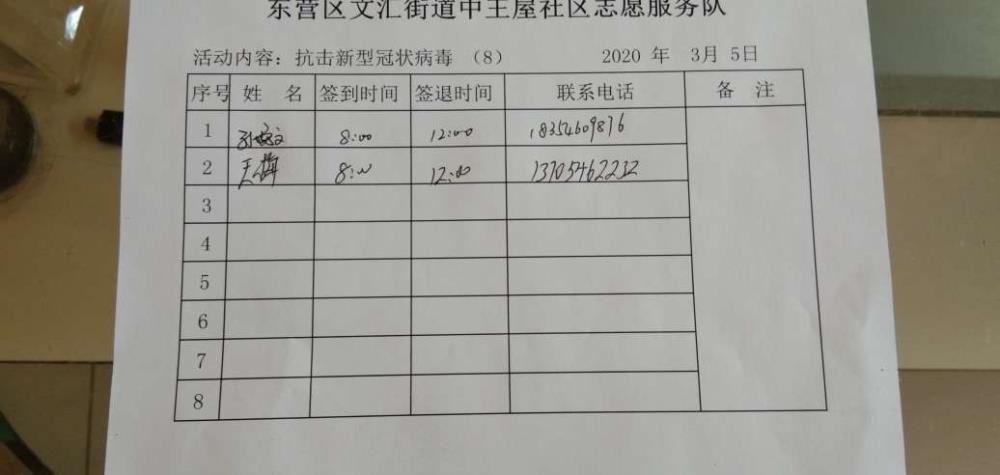 东营区文汇街道中王屋社区志愿服务队
活动内容：抗击新型冠状病毒 （8） 2020 年 3月 5日
序号 姓 名 签到时间 签退时间 联系电话 备 注
1 8:00 12:00 18354609876
2 王梅 8:00 12:00 13705462232
3
4
5
6
7
8